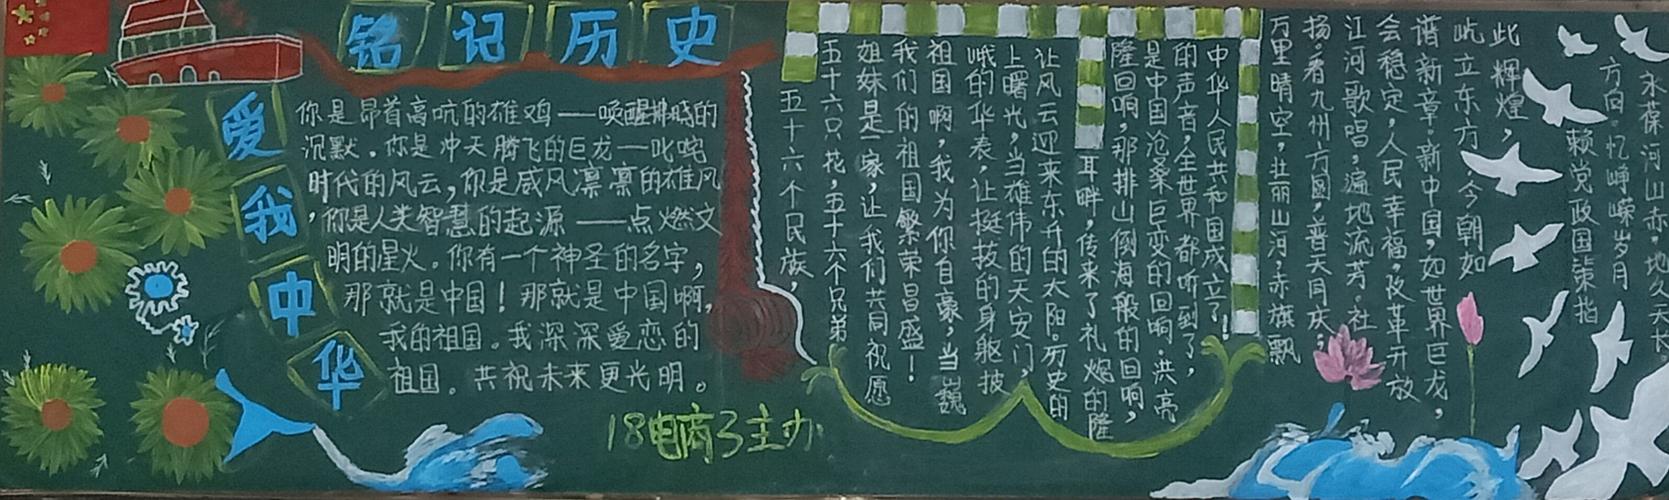 铭记历史
爱我中华
你是昂首高吭的雄鸡——唤醒拂晓的
沉默。你是冲天腾飞的巨龙——叱咤
时代的风云,你是威风凛凛的雄风
,你是人类智慧的起源——点燃文
明的星火。你有一个神圣的名字,
那就是中国!那就是中国啊,
我的祖国。我深深爱恋的
祖国。共祝未来更光明。
18电商3主办
五十六个民族,
五十六只花,五十六个兄弟
姐妹是一家,让我们共同祝愿
我们的祖国繁荣昌盛!
祖国啊,我为你自豪,当巍
峨的华表,让挺拔的身躯披
上曙光,当雄伟的天安门,
让风云迎来东升的太阳.历史的
耳畔,传来了礼炮的隆
隆回响,那排山倒海般的回响,
是中国沧桑巨变的回响.洪亮
的声音,全世界都听到了,
中华人民共和国成立了!
万里晴空,壮丽山河,赤旗飘
扬.看九州方圆,普天同庆;
江河歌唱,遍地流芳.社
会稳定,人民幸福,改革开放
谱新章.新中国,如世界巨龙,
屹立东方.今朝如
此辉煌,
赖党政国策指
方向.忆峥嵘岁月
永葆河山赤.地久天长